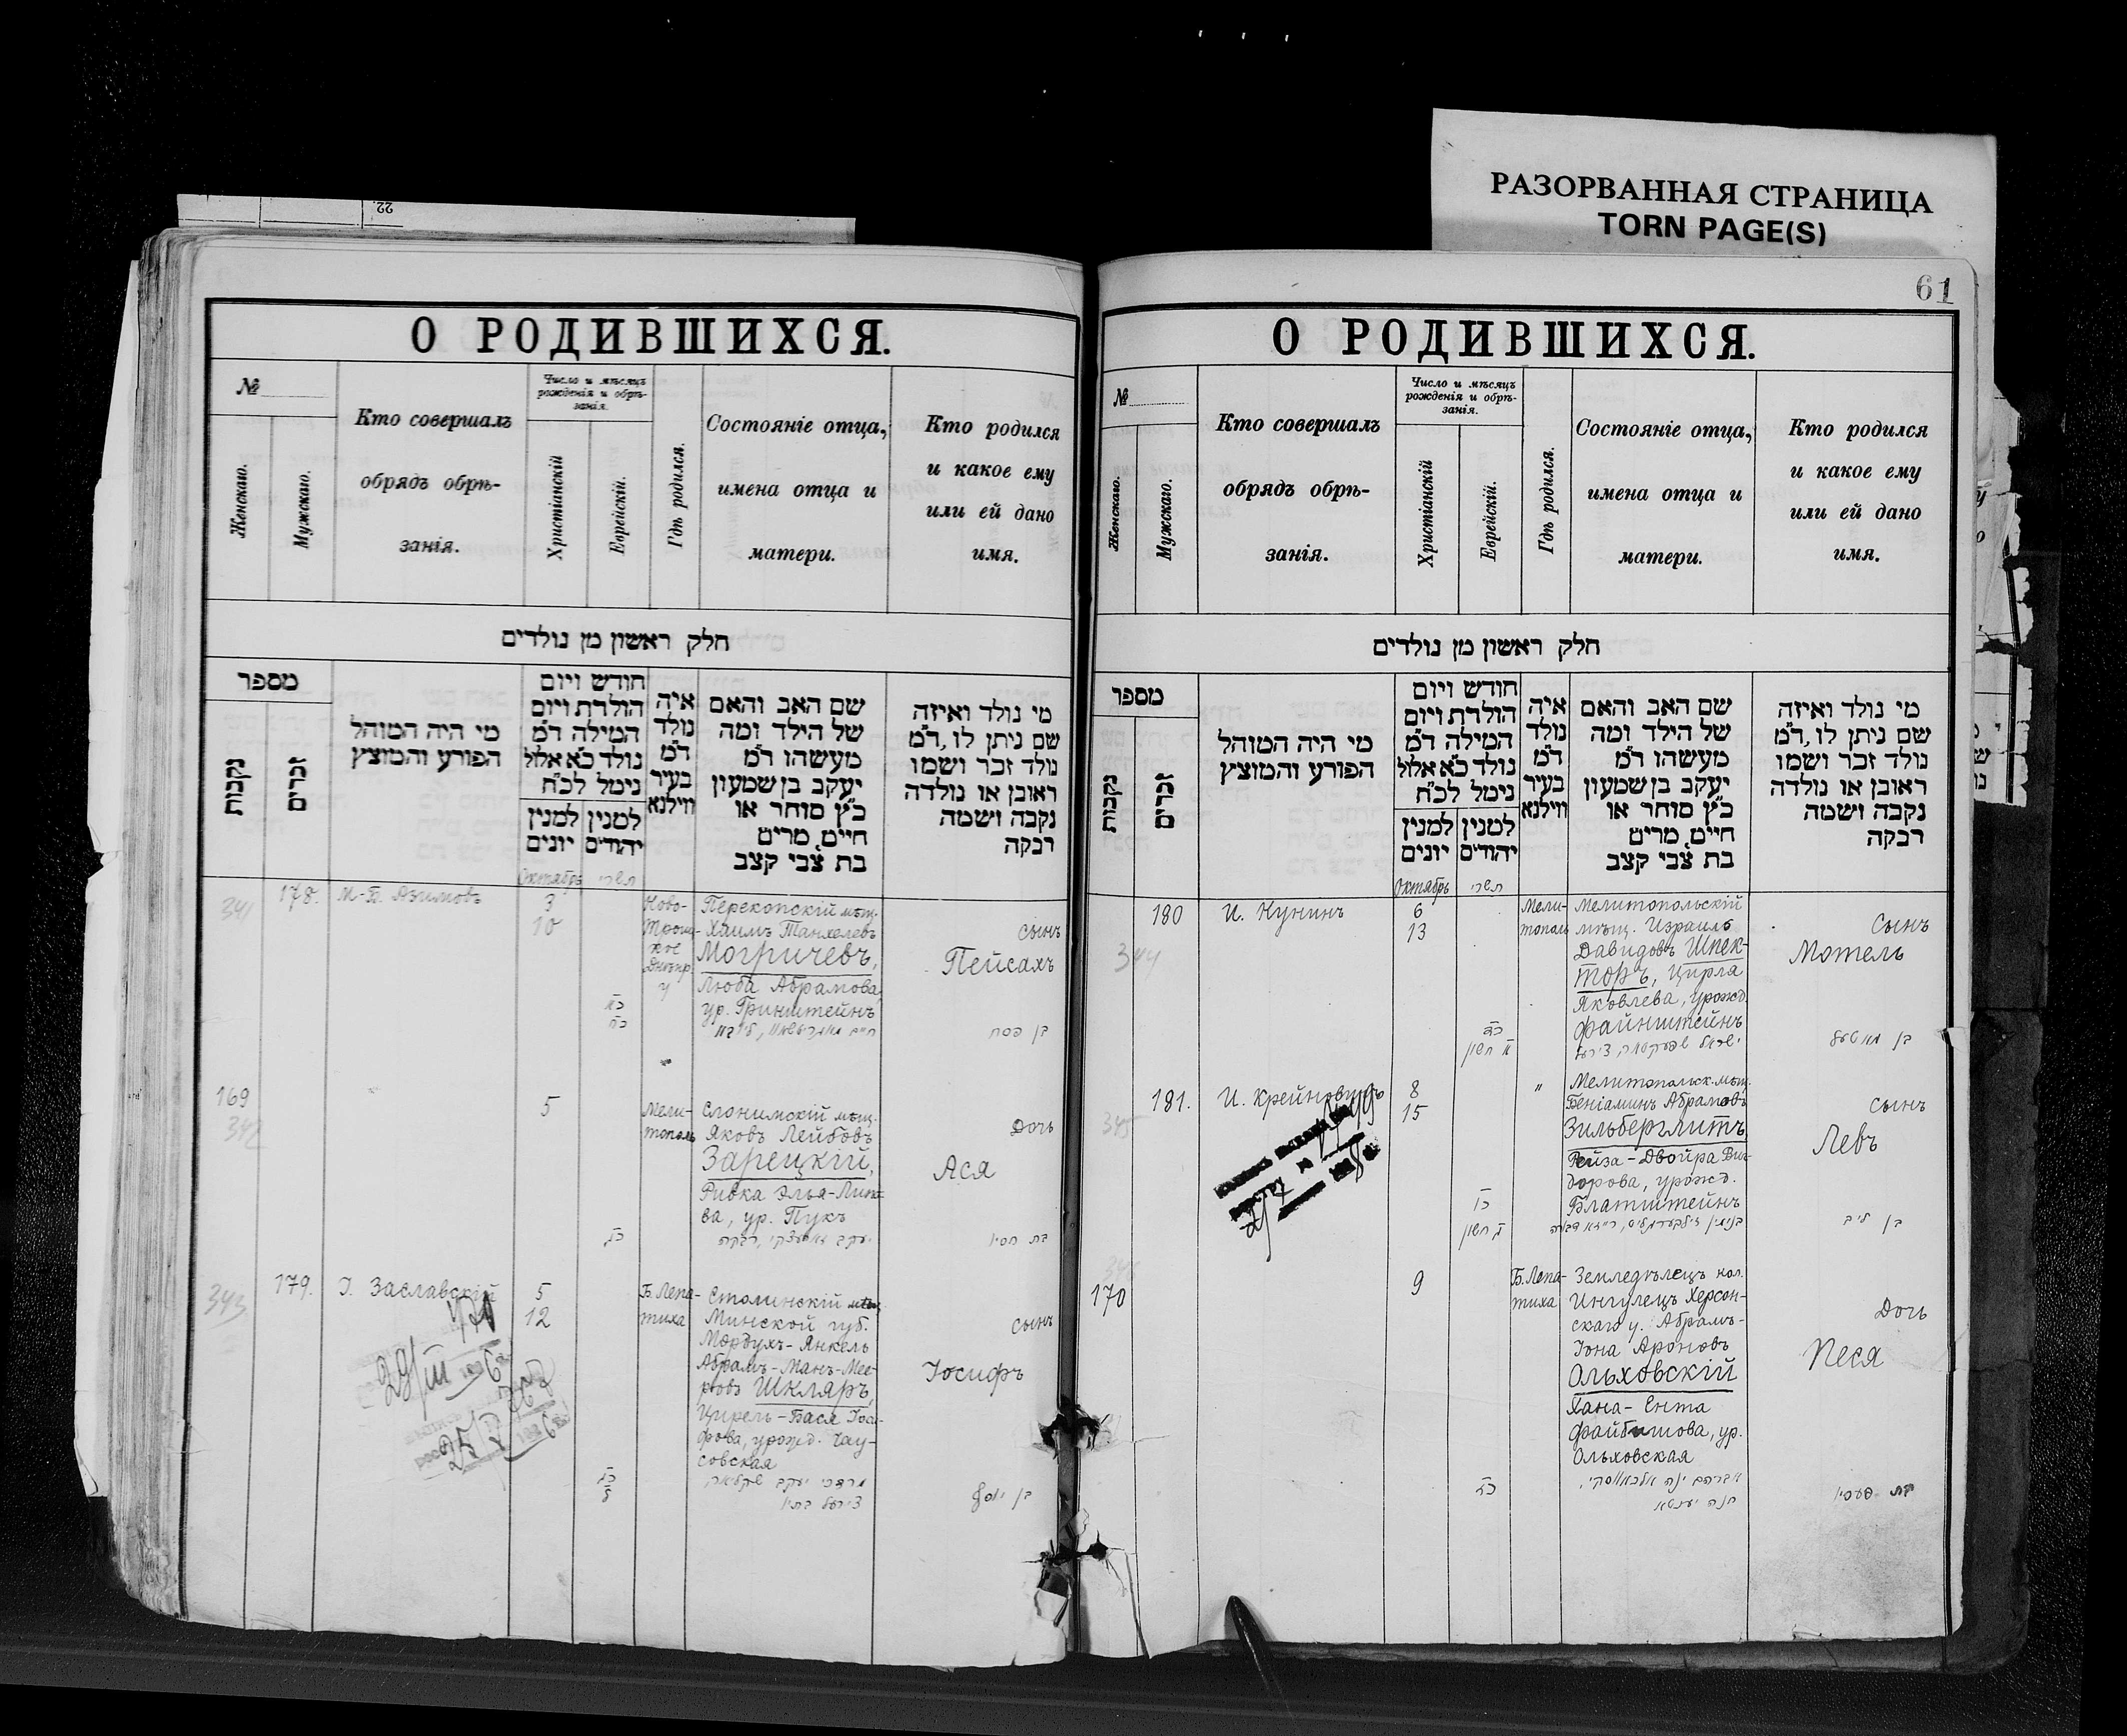 22.
РАЗОРВАННАЯ СТРАНИЦА
TORN PAGE(S)
О РОДИВШИХСЯ.
№
Женскаго.
Мужскаго.
Кто совершалъ
обрядъ обрѣ-
занія.
Число и мѣсяцъ
рожденія и обрѣ-
занія.
Христіанскій
Еврейскій.
Гдѣ родился.
Состояніе отца,
имена отца и
матери.
Кто родился
и какое ему
или ей дано
имя.
חלק ראשון מן נולדים
מספר
נקבות
זכרים
מי היה המוהל
הפורע והמוצץ
חודש ויום
הולדת ויום
המילה ד״מ
נולד כ״א אלול
נימל לכ״ח
למנין יונים
למנין יהודים
איה
נולד
ד״מ
בעיר
ווילנא
שם האב והאם
של הילד ומה
מעשהו ד״מ
יעקב בן שמעון
כ״ץ סוחר או
חייט, מרים
בת צבי קצב
מי נולד ואיזה
שם ניתן לו, ד״מ
נולד זכר ושמו
ראובן או נולדה
נקבה ושמה
רבקה
Октябрь תשרי
341
178.
М-Б. Азимовъ
3
10
Ново-
Троиц-
кое
Днѣпр.
у
Перекопскій мѣщ.
Хаимъ Танхелевъ
Могричевъ,
Люба Абрамова,
ур. Гринштейнъ
сынъ
Пейсахъ
בן פסח
169
342
5
Мели-
тополь
Слонимскій мѣщ.
Яковъ Лейбовъ
Зарецкій,
Ривка Элья-
ва, ур. Пукъ
Дочь
Ася
343
179.
І. Заславскій
5
12
Б. Лепа-
тиха
Столинскій мѣщ.
Минской губ.
Мордухъ-Янкель
Абрамъ-Манъ-Мее-
ровъ Шкляръ,
Цирель-Бася Іоси-
фова, урожд. Чау-
совская
сынъ
Іосифъ
בן יוסף
61
О РОДИВШИХСЯ.
№
Женскаго.
Мужскаго.
Кто совершалъ
обрядъ обрѣ-
занія.
Число и мѣсяцъ
рожденія и обрѣ-
занія.
Христіанскій
Еврейскій.
Гдѣ родился.
Состояніе отца,
имена отца и
матери.
Кто родился
и какое ему
или ей дано
имя.
חלק ראשון מן נולדים
מספר
נקבות
זכרים
מי היה המוהל
הפורע והמוצץ
חודש ויום
הולדת ויום
המילה ד״מ
נולד כ״א אלול
נימל לכ״ח
למנין יונים
למנין יהודים
איה
נולד
ד״מ
בעיר
ווילנא
שם האב והאם
של הילד ומה
מעשהו ד״מ
יעקב בן שמעון
כ״ץ סוחר או
חייט, מרים
בת צבי קצב
מי נולד ואיזה
שם ניתן לו, ד״מ
נולד זכר ושמו
ראובן או נולדה
נקבה ושמה
רבקה
Октябрь תשרי
344
180
И. Кунинъ
6
13
Мели-
тополь
Мелитопольскій
мѣщ. Израиль
Давидовъ Шпек-
торъ, Цирла
Яковлева, урожд.
Файнштейнъ
Сынъ
Мотель
345
181.
И. Крейновичъ
8
15
"
Мелитопольск. мѣщ.
Беніаминъ Абрамовъ
Зильберглитъ
Рейза-Двойра Виг-
дорова, урожд.
Блатштейнъ
сынъ
Левъ
בן ליב
170
9
Б. Лепа-
тиха
Земледѣлецъ кол.
Ингулецъ Херсон-
скаго у. Абрамъ-
Іона Ароновъ
Ольховскій
Хана-Ента
Файбишова, ур.
Ольховская
Дочь
Песя